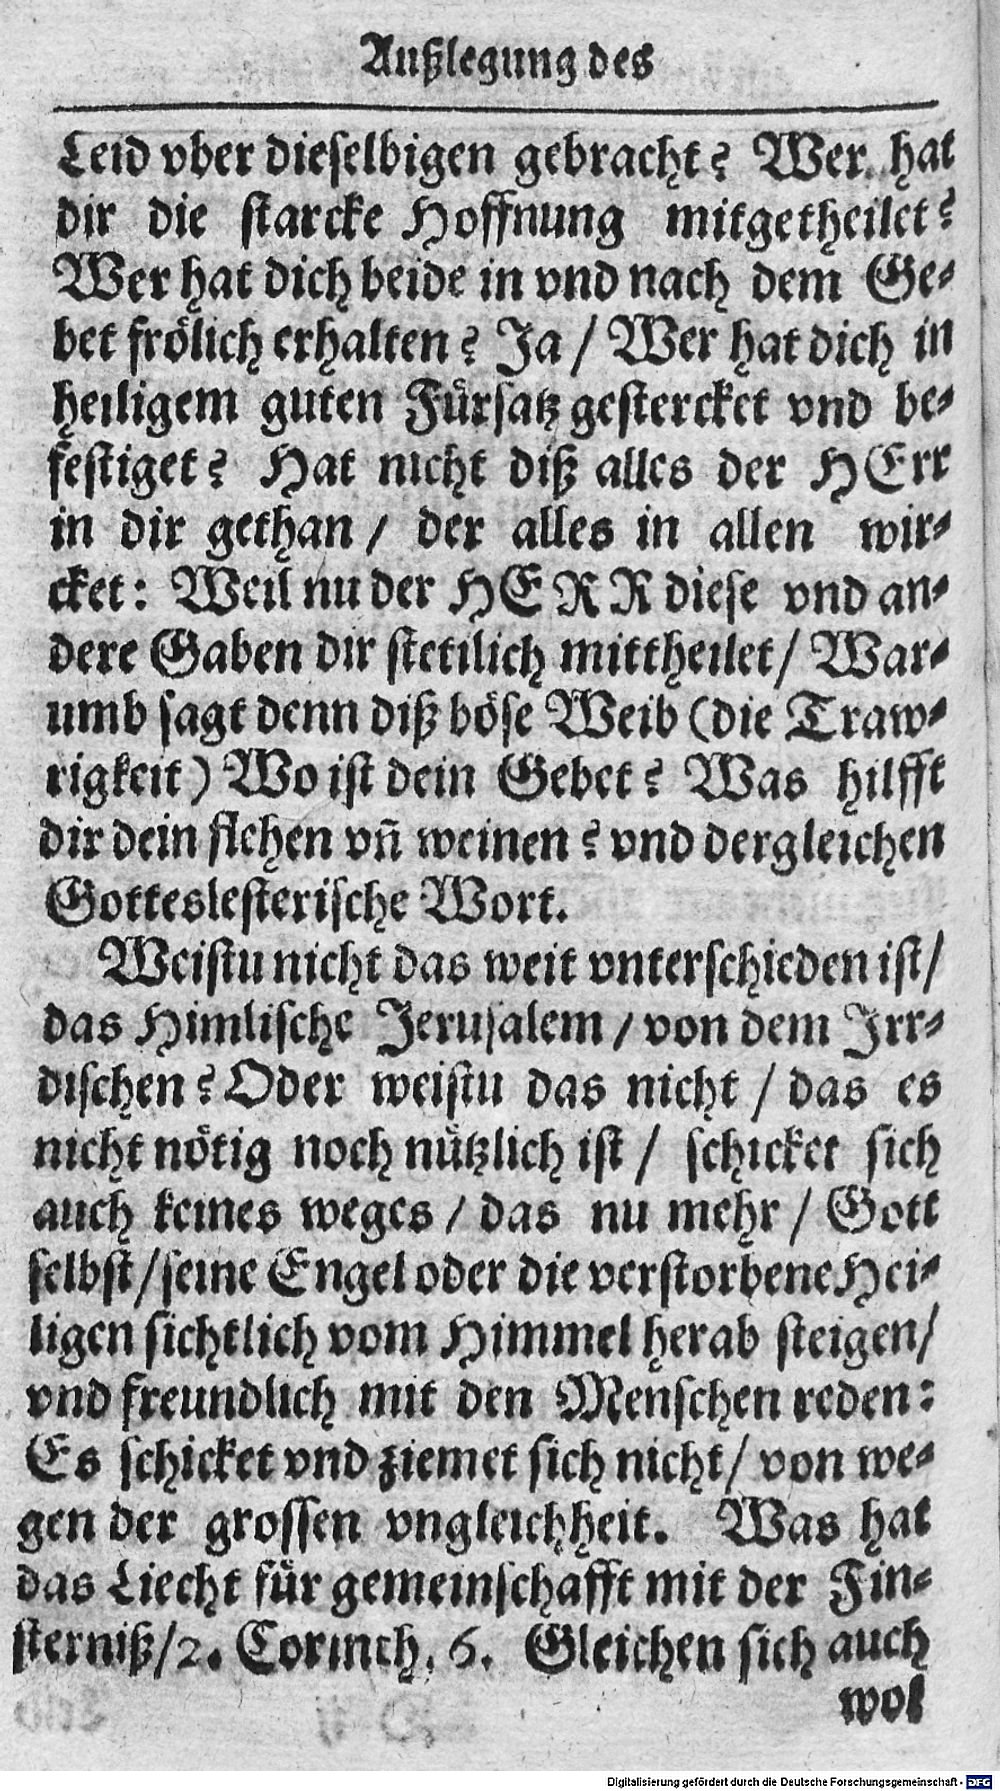 Außlegung des
Leid vber dieselbigen gebracht? Wer hat
dir die starcke Hoffnung mitgetheilet?
Wer hat dich beide in vnd nach dem Ge-
bet frölich erhalten? Ja / Wer hat dich in
heiligem guten Fürsatz gestercket vnd be-
festiget? Hat nicht diß alles der HErr
in dir gethan / der alles in allen wir-
cket: Weil nu der HERR diese vnd an-
dere Gaben dir stetilich mittheilet / War-
umb sagt denn diß böse Weib (die Traw-
rigkeit) Wo ist dein Gebet? Was hilfft
dir dein flehen vñ weinen? vnd dergleichen
Gotteslesterische Wort.
Weistu nicht das weit vnterschieden ist /
das Himlische Jerusalem / von dem Irr-
dischen? Oder weistu das nicht / das es
nicht nötig noch nützlich ist / schicket sich
auch keines weges / das nu mehr / Gott
selbst / seine Engel oder die verstorbene Hei-
ligen sichtlich vom Himmel herab steigen /
vnd freundlich mit den Menschen reden:
Es schicket vnd ziemet sich nicht / von we-
gen der grossen vngleichheit. Was hat
das Liecht für gemeinschafft mit der Fin-
sterniß / 2. Corinth. 6. Gleichen sich auch
wol
Digitalisierung gefördert durch die Deutsche Forschungsgemeinschaft - DFG